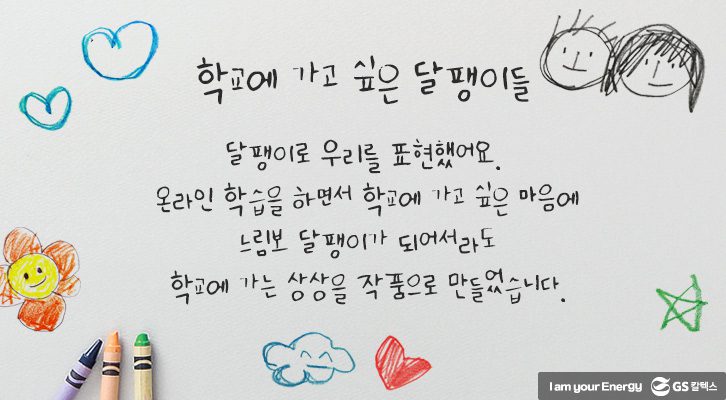 학교에 가고 싶은 달팽이들
달팽이로 우리를 표현했어요.
온라인 학습을 하면서 학교에 가고 싶은 마음에
느림보 달팽이가 되어서라도
학교에 가는 상상을 작품으로 만들었습니다.
I am your Energy GS칼텍스